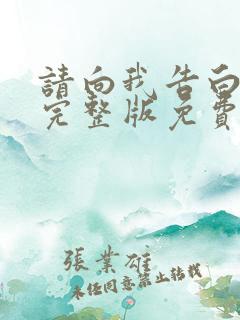 請向我告白
完整版免費
張業雄
未任同意禁止转载